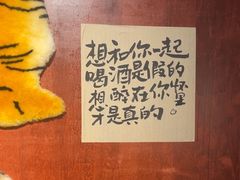 想和你一起
喝酒是假的
想醉在你怀里
才是真的。